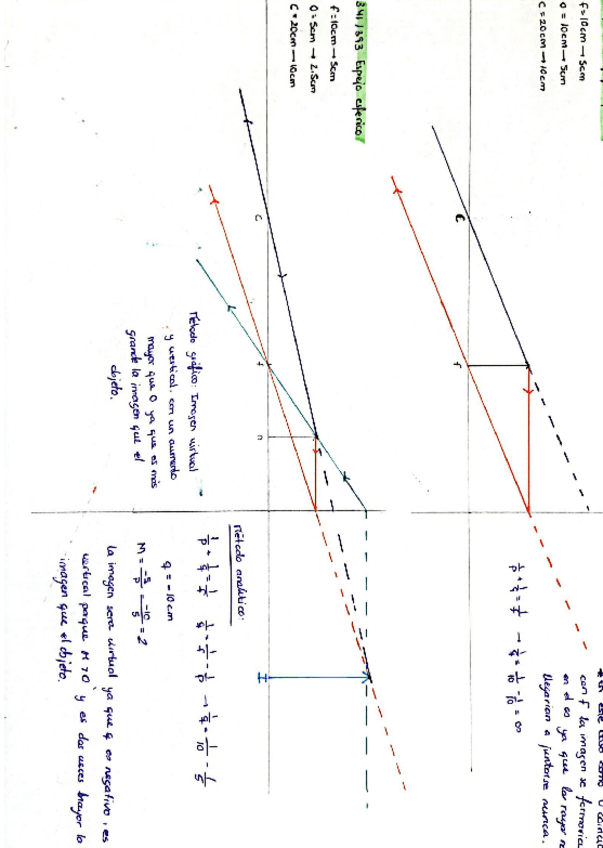 f=10cm → 5cm
O = 10cm → 5cm
C = 20cm → 10cm
en este caso como O
con f la imagen se
en el ∞ ya que los rayos
llegarían a juntarse nunca.
1/p + 1/q = 1/f → 1/q = 1/10 - 1/10 = ∞
C
f
341/393 Espejo esférico
f=10cm → 5cm
O=5cm → 2.5cm
C=20cm → 10cm
C
f
o
I
Método gráfico: Imagen virtual
y vertical. con un aumento
mayor que 0 ya que es más
grande la imagen que el
objeto.
Método analítico:
1/p + 1/q = 1/f 1/q = 1/f - 1/p → 1/q = 1/10 - 1/5
q = -10cm
M = -q/p = -10/5 = 2
la imagen sera virtual ya que q es negativo, es
vertical porque M>0 y es dos veces mayor la
imagen que el objeto.